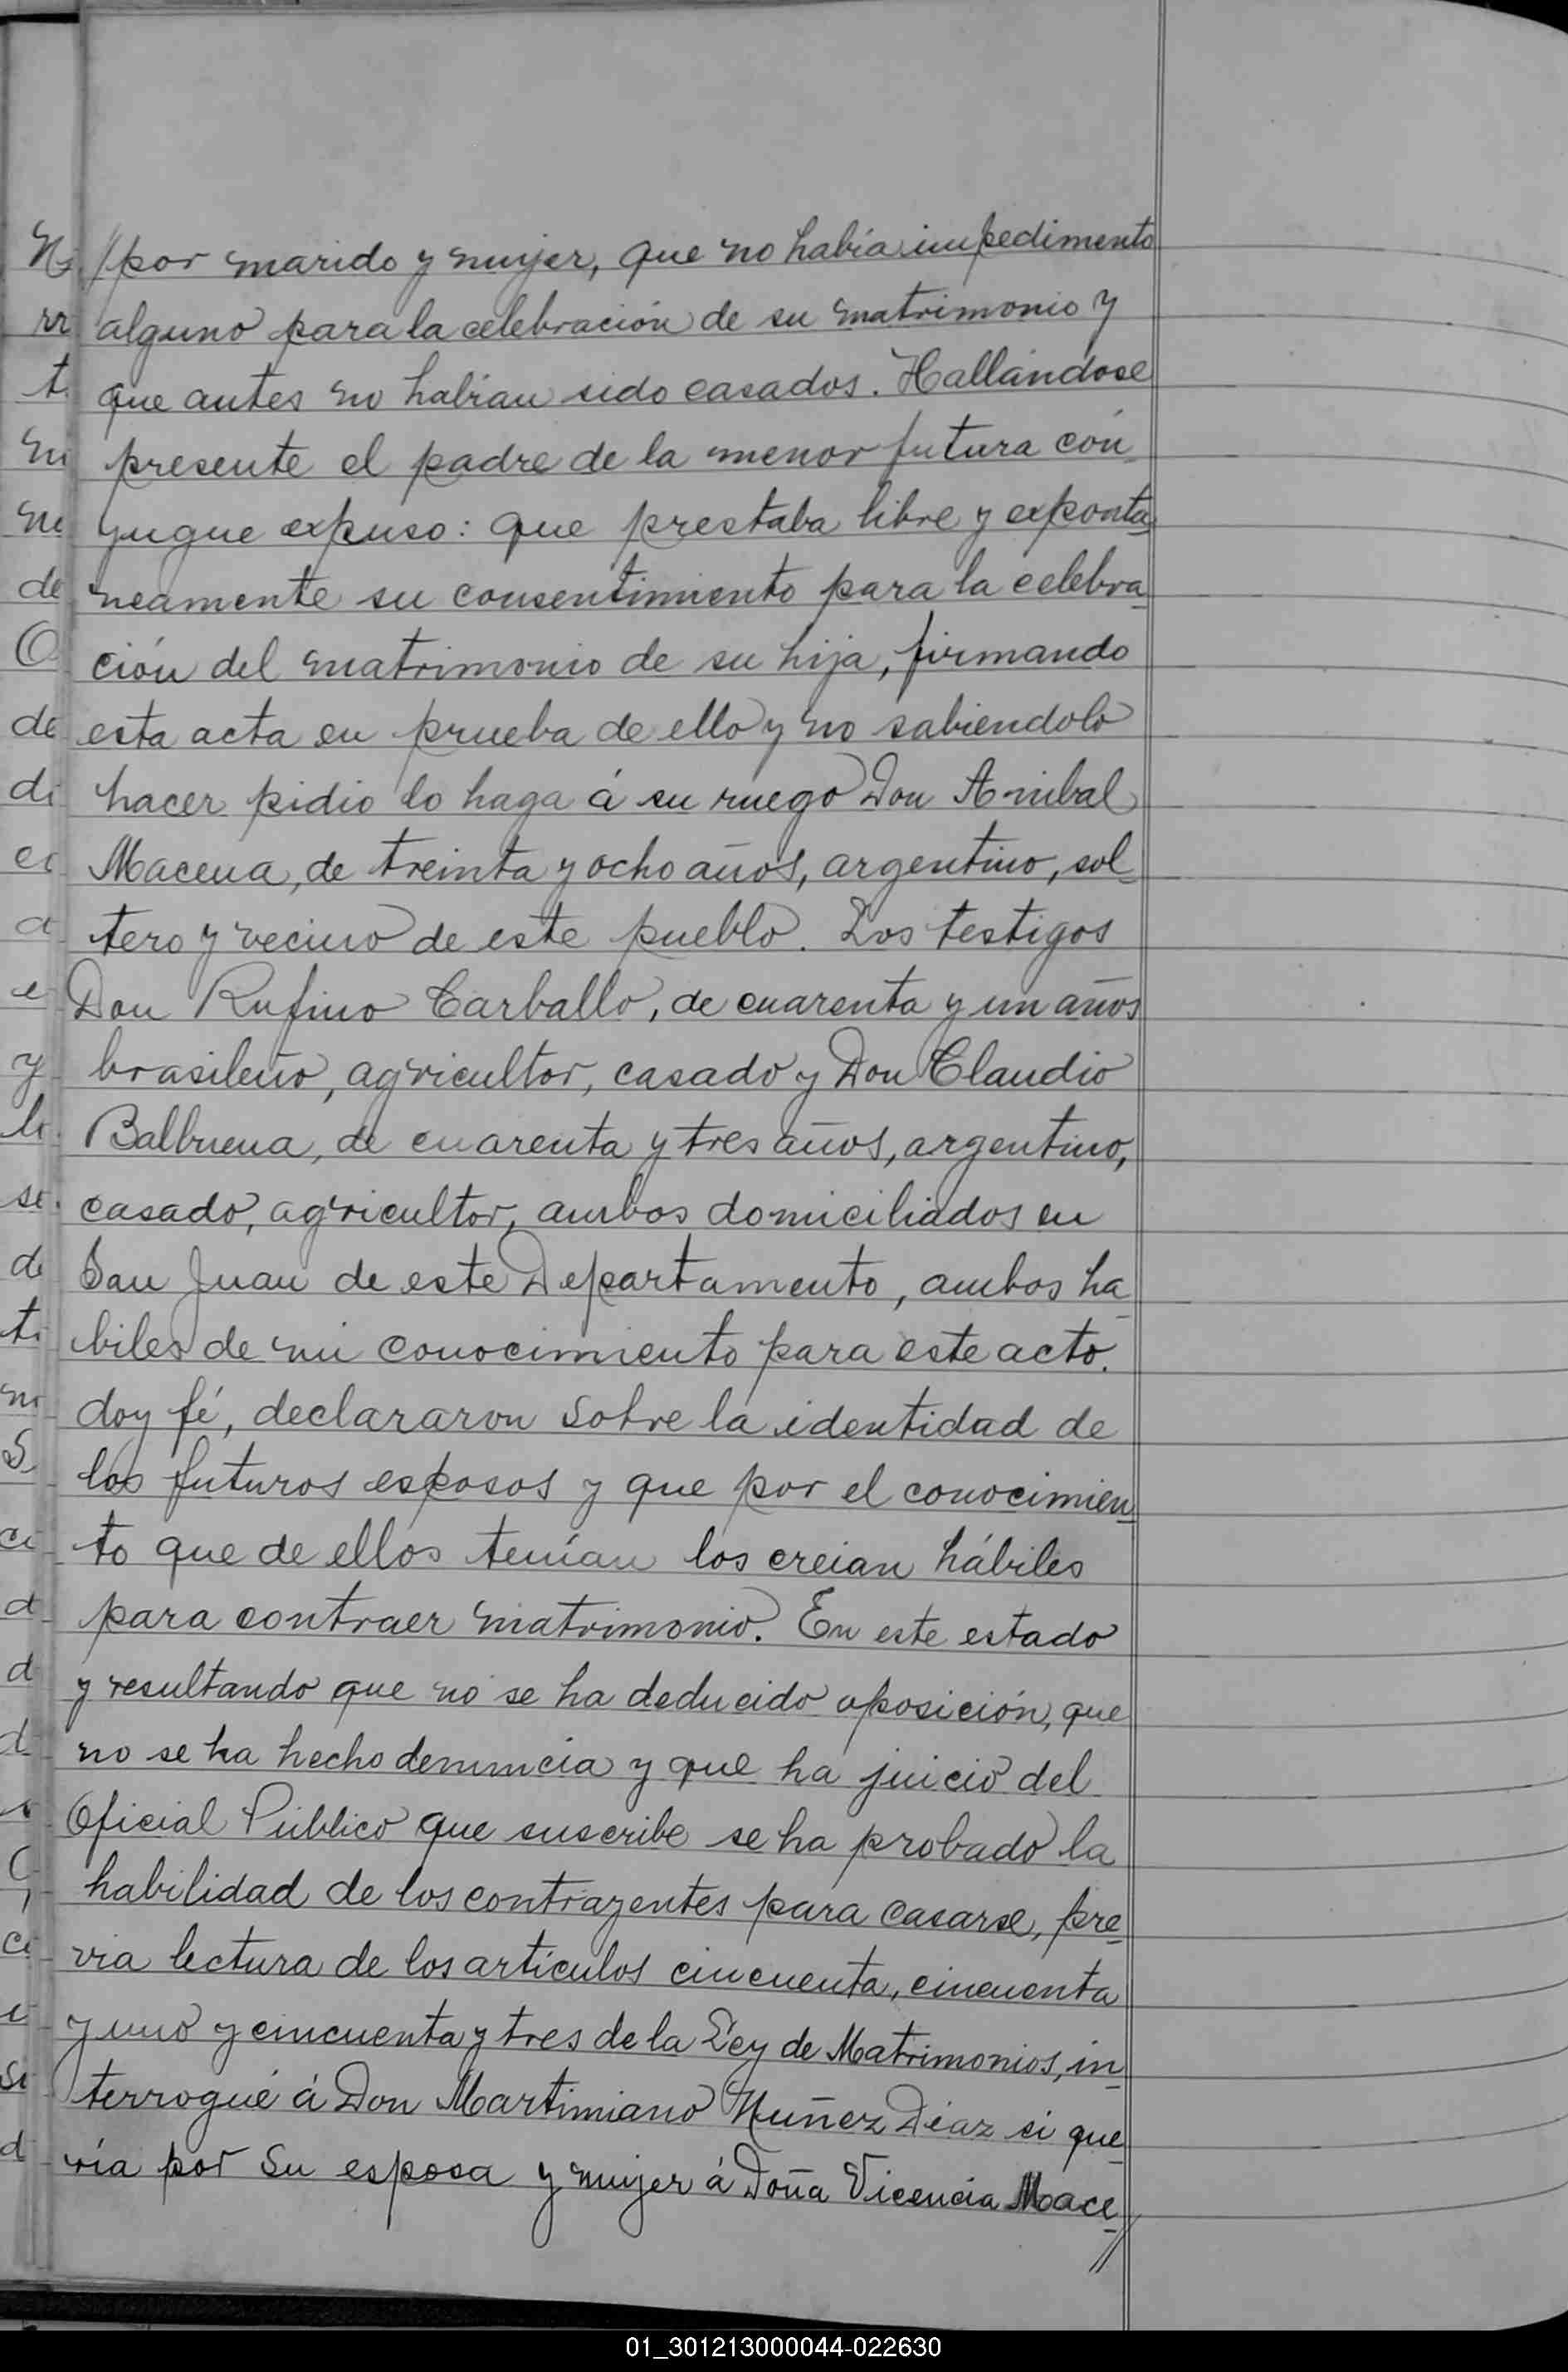 //por marido y mujer, que no había impedimento
alguno para la celebración de su matrimonio y
que antes no habían sido casados. Hallándose
presente el padre de la menor futura cón-
yugue expuso: que prestaba libre y exponta-
neamente su consentimiento para la celebra-
ción del matrimonio de su hija, firmando
esta acta en prueba de ello y no sabiendolo
hacer pidio lo haga á su ruego Don Anibal
Macena, de treinta y ocho años, argentino, sol-
tero y vecino de este pueblo. Los testigos
Don Rufino Carballo, de cuarenta y un años
brasileño, agricultor, casado y Don Claudio
Balbuena, de cuarenta y tres años, argentino,
casado, agricultor, ambos domiciliados en
San Juan de este Departamento, ambos ha-
biles de mi conocimiento para este acto.
doy fé, declararon sobre la identidad de
los futuros esposos y que por el conocimien-
to que de ellos tenían los creian hábiles
para contraer matrimonio. En este estado
y resultando que no se ha deducido oposición, que
no se ha hecho denuncia y que ha juicio del
Oficial Público que suscribe se ha probado la
habilidad de los contrayentes para casarse, pre-
via lectura de los artículos cincuenta, cincuenta
y uno y cincuenta y tres de la Ley de Matrimonios, in-
terrogué á Don Martimiano Nuñez Diaz si que-
ría por su esposa y mujer á Doña Vicencia Mace-//
01_301213000044-022630